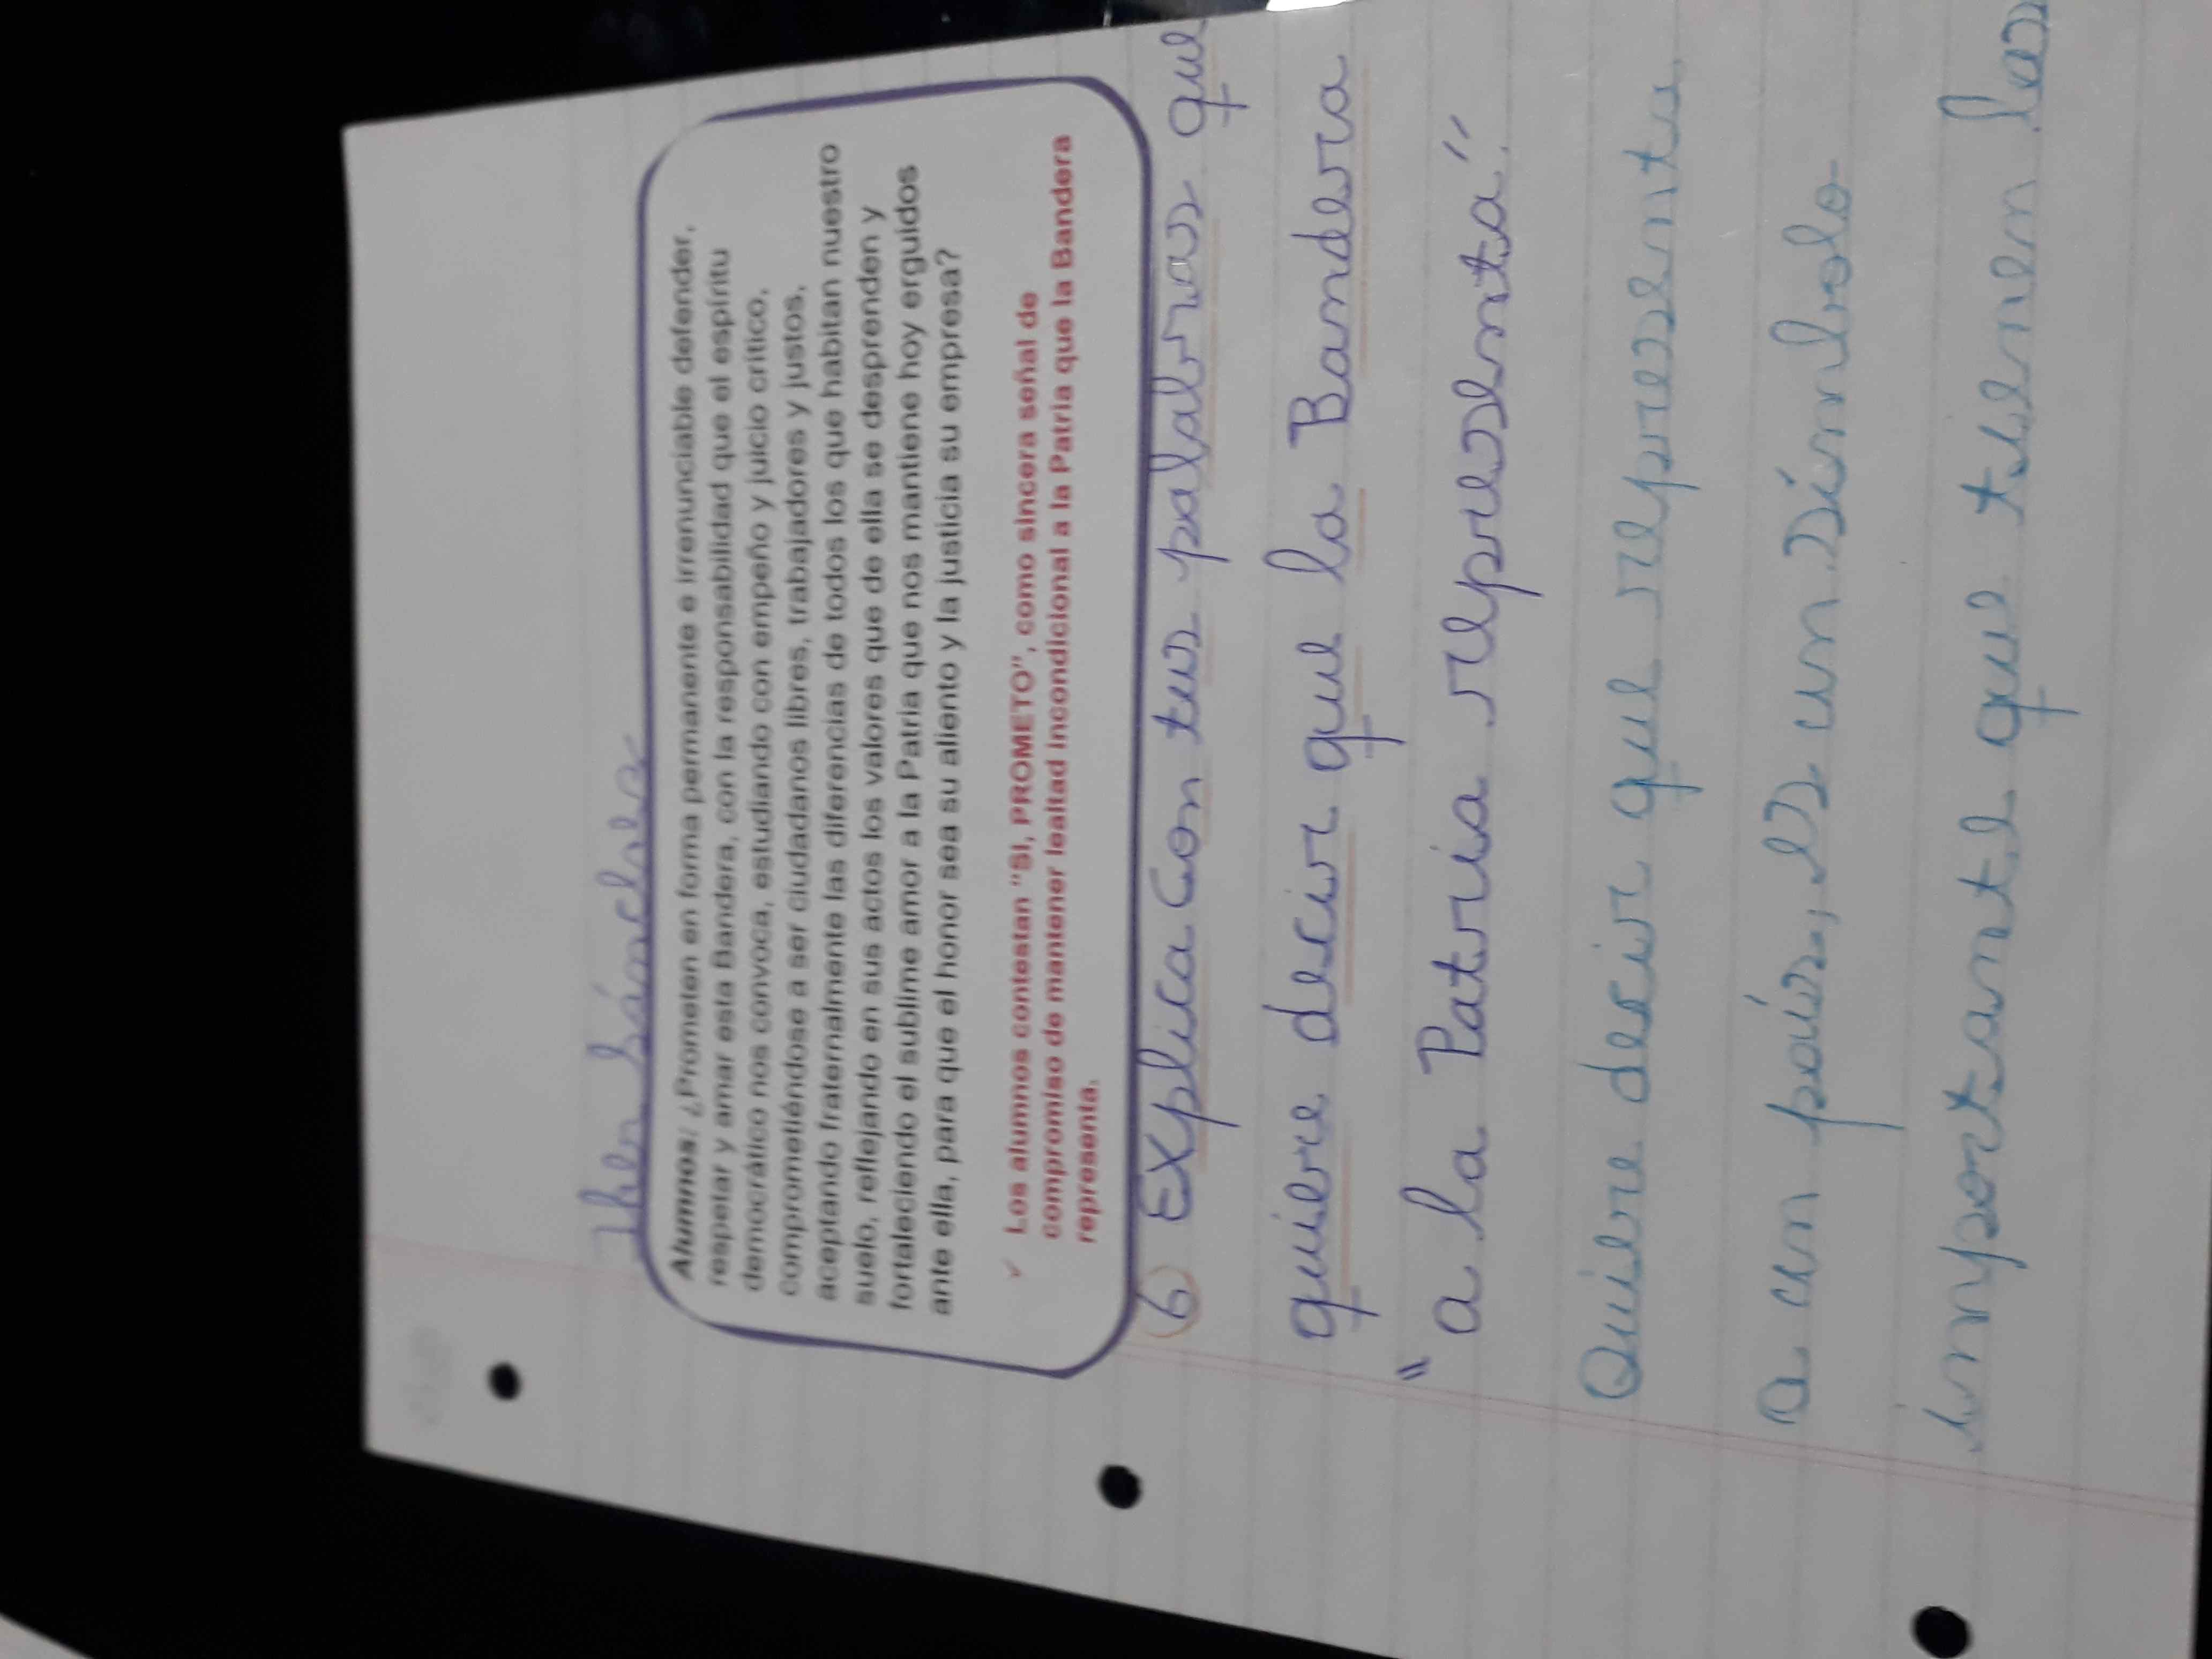 Sánchez
Alumnos: ¿Prometen en forma permanente e irrenunciable defender,
respetar y amar esta Bandera, con la responsabilidad que el espíritu
democrático nos convoca, estudiando con empeño y juicio crítico,
comprometiéndose a ser ciudadanos libres, trabajadores y justos,
aceptando fraternalmente las diferencias de todos los que habitan nuestro
suelo, reflejando en sus actos los valores que de ella se desprenden y
fortaleciendo el sublime amor a la Patria que nos mantiene hoy erguidos
ante ella, para que el honor sea su aliento y la justicia su empresa?
✓ Los alumnos contestan "SI, PROMETO", como sincera señal de
compromiso de mantener lealtad incondicional a la Patria que la Bandera
representa.
6) Explica con tus palabras que
quiere decir que la Bandera
"a la Patria representa".
Quiere decir que representa
a un país, es un símbolo
importante que tienen los